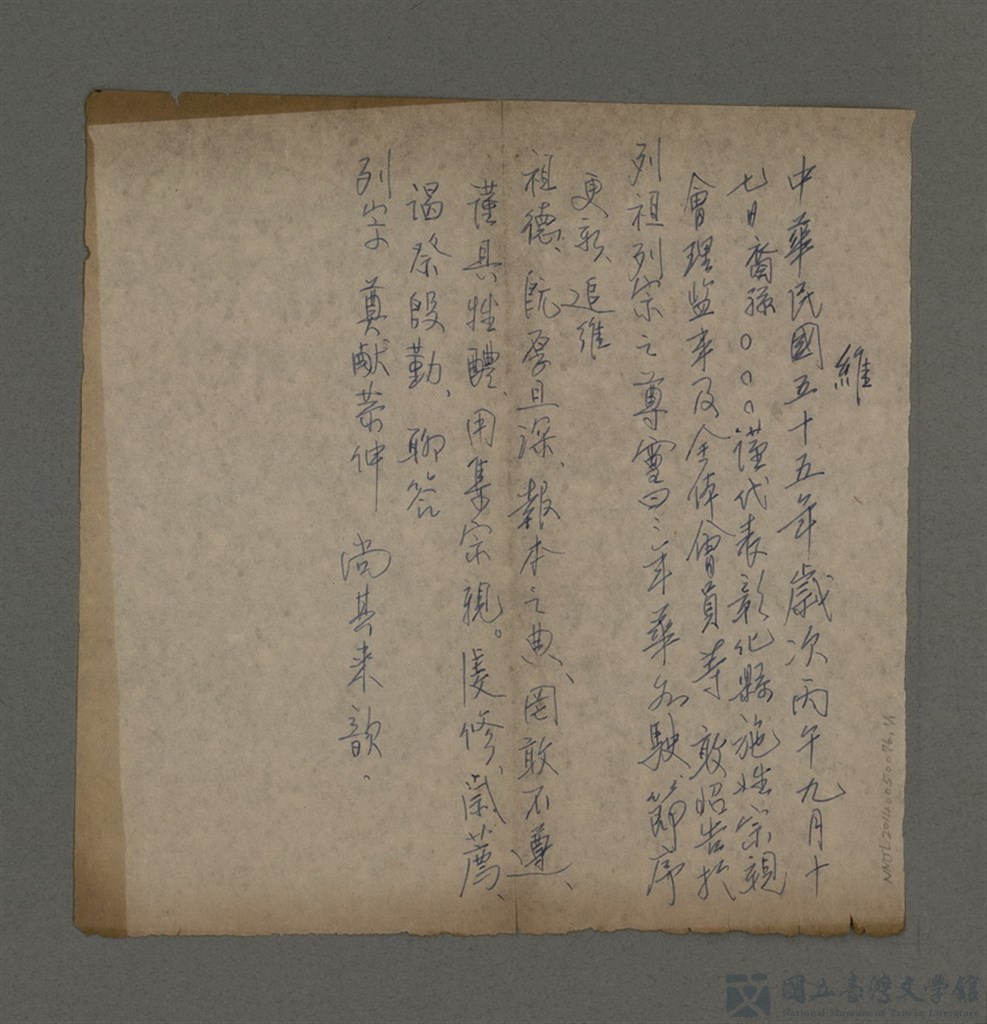 維
中華民國五十五年歲次丙午九月十
七日裔孫○○○謹代表彰化縣施姓宗親
會理監事及全体會員等 敢昭告於
列祖列宗之尊靈曰：年華如駛、節序
更新、追維
祖德、既厚且深、報本之典、罔敢不遵、
謹具牲醴、用集宗親。虔修歲薦、
謁祭殷勤、聊答
列宗 奠献荣伸 尚其来歆。
NMTL20140050076,1/1
國立臺灣文學館
National Museum of Taiwan Literature